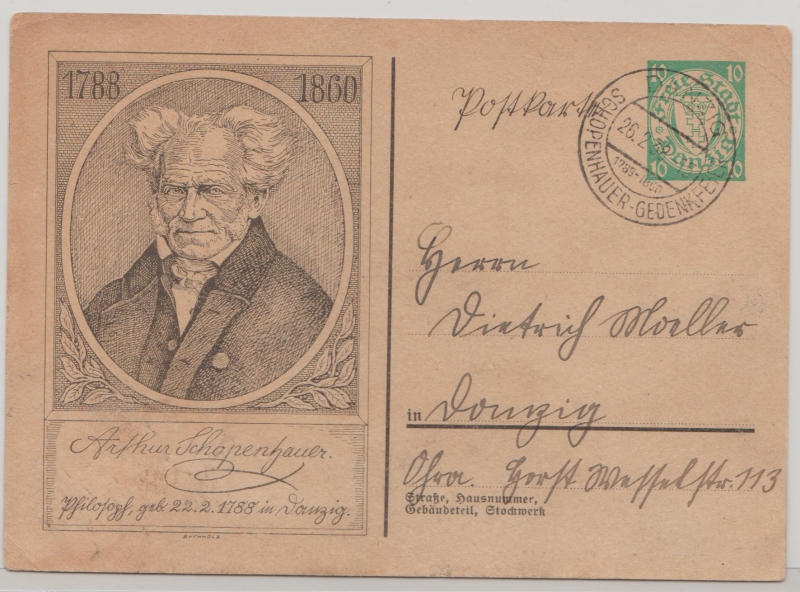 1788 1860
Arthur Schopenhauer.
Philosoph, geb. 22.2.1788 in Danzig.
BUCHHOLZ
Postkarte
10 10
Freie Stadt
Danzig
10 10
26.2.
1788-1860
SCHOPENHAUER-GEDENKFEIER
Herrn
Dietrich Moeller
in Danzig
Ohra. Horst Wesselstr. 113
Straße, Hausnummer,
Gebäudeteil, Stockwerk